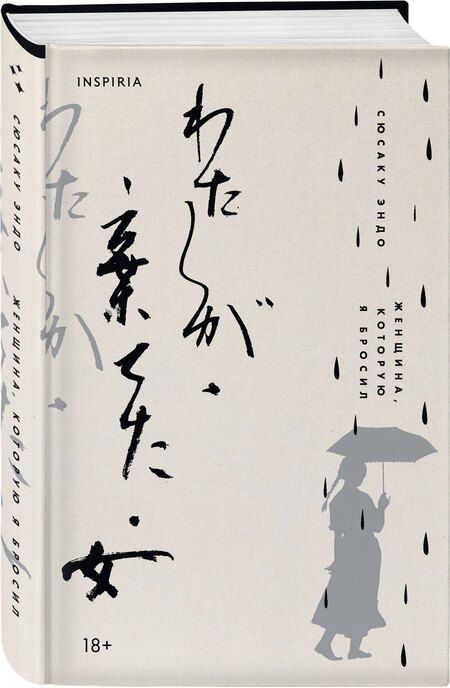 INSPIRIA
わたしが・
・棄てた・
女
СЮСАКУ ЭНДО
ЖЕНЩИНА,
КОТОРУЮ
Я БРОСИЛ
18+
СЮСАКУ ЭНДО ЖЕНЩИНА, КОТОРУЮ Я БРОСИЛ
わたしが・